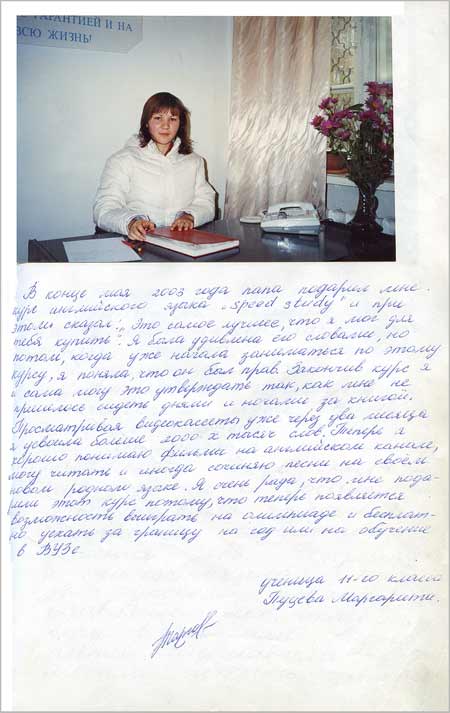 С ГАРАНТИЕЙ И НА
ВСЮ ЖИЗНЬ!
В конце мая 2003 года папа подарил мне
курс английского языка „speed study" и при
этом сказал: „Это самое лучшее, что я мог для
тебя купить". Я была удивлена его словами, но
потом, когда уже начала заниматься по этому
курсу, я поняла, что он был прав. Закончив курс я
и сама могу это утверждать так, как мне не
пришлось сидеть днями и ночами за книгой.
Просматривая видеокассеты уже через два месяца
я усвоила больше 2000-х тысяч слов. Теперь я
хорошо понимаю фильмы на английском канале,
могу читать и иногда сочиняю песни на своём
новом родном языке. Я очень рада, что мне пода-
рили этот курс потому, что теперь появляется
возможность выиграть на олимпиаде и бесплат-
но уехать за границу на год или на обучение
в ВУЗе
ученица 11-го класса
Пуцева Маргарита.